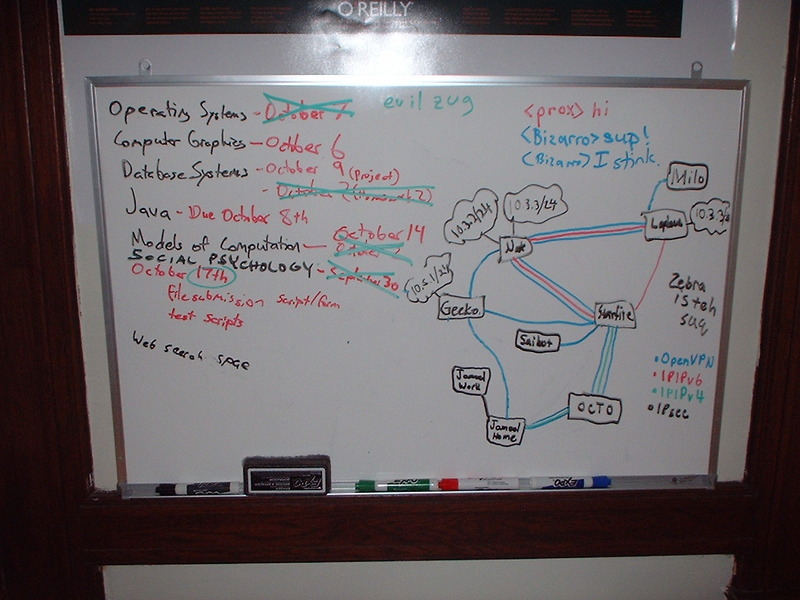 O'REILLY
Operating Systems - October 7
Computer Graphics - October 6
Database Systems - October 9 (Project)
- October 2 (Homework 2)
Java - Due October 8th
Models of Computation - October 14
October
SOCIAL PSYCHOLOGY - September 30
October 17th
File submission script/form
test scripts
Web search
evil zug
<prox> hi
<Bizarro> sup!
<Bizarro> I stink.
Milo
10.3.3/24
10.3.2/24
10.3.3/2
Nat
10.5.1/24
Gecko
Starfire
Saibot
Jamool
Work
OCTO
Jamool
Home
Zebra
is teh
suq
•OpenVPN
•IPIPv6
•IPIPv4
•IPsec
EXPO